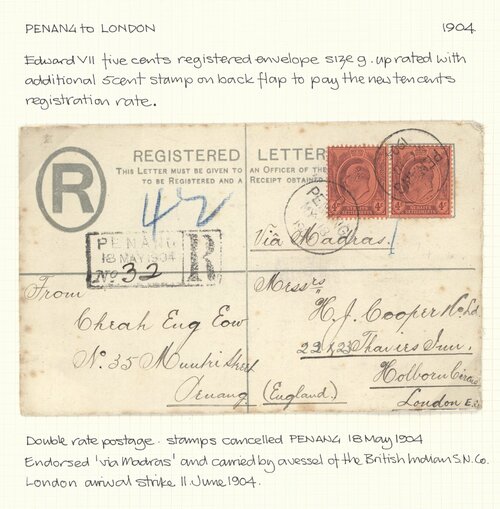 PENANG to LONDON 1904
Edward VII five cents registered envelope size g. uprated with
additional 5cent stamp on back flap to pay the new ten cents
registration rate.
REGISTERED LETTER
THIS LETTER MUST BE GIVEN TO AN OFFICER OF THE
TO BE REGISTERED AND A RECEIPT OBTAINED
R
42
PENANG
18 MAY 1904
No. 32
R
Via Madras.
From
Cheah Eng Eow
No. 35 Muntri Street
Penang
Messrs
H. J. Cooper & Co Ld
22 & 23 Thavies Inn.
Holborn Circus
(England). London E.
Double rate postage. stamps cancelled PENANG 18 May 1904
Endorsed 'via Madras' and carried by a vessel of the British Indian S.N. Co.
London arrival strike 11 June 1904.